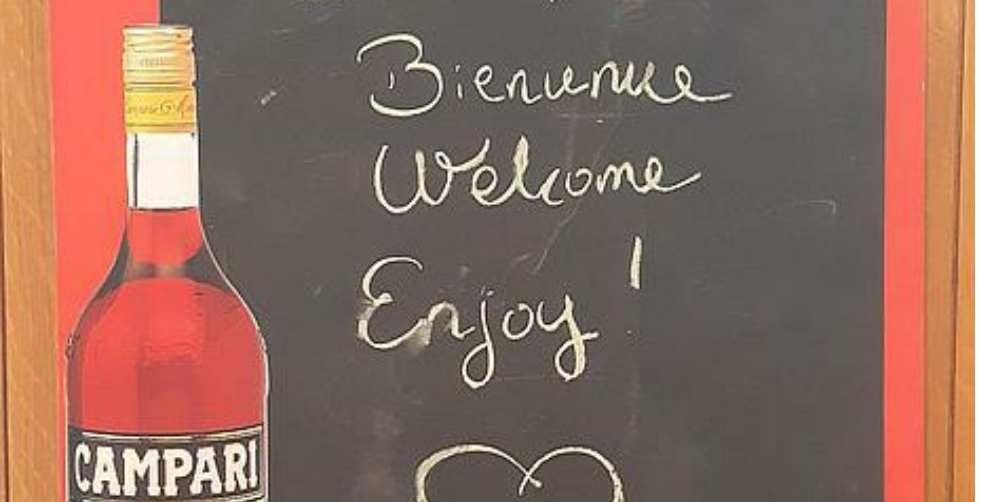 Bienvenue
Welcome
Enjoy !
CAMPARI